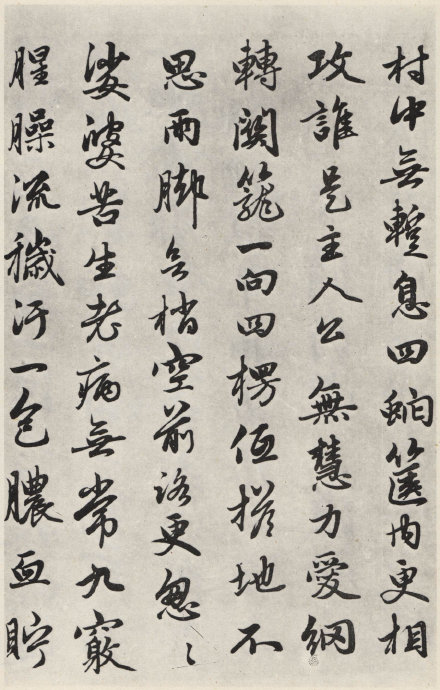 村中無蹔息四虵篋内更相
攻誰是主人公無慧力愛網
轉關籠一向四楞低搭地不
思兩脚梢空前路更怱〻
娑婆苦生老病無常九竅
腥臊流穢汙一包膿血貯